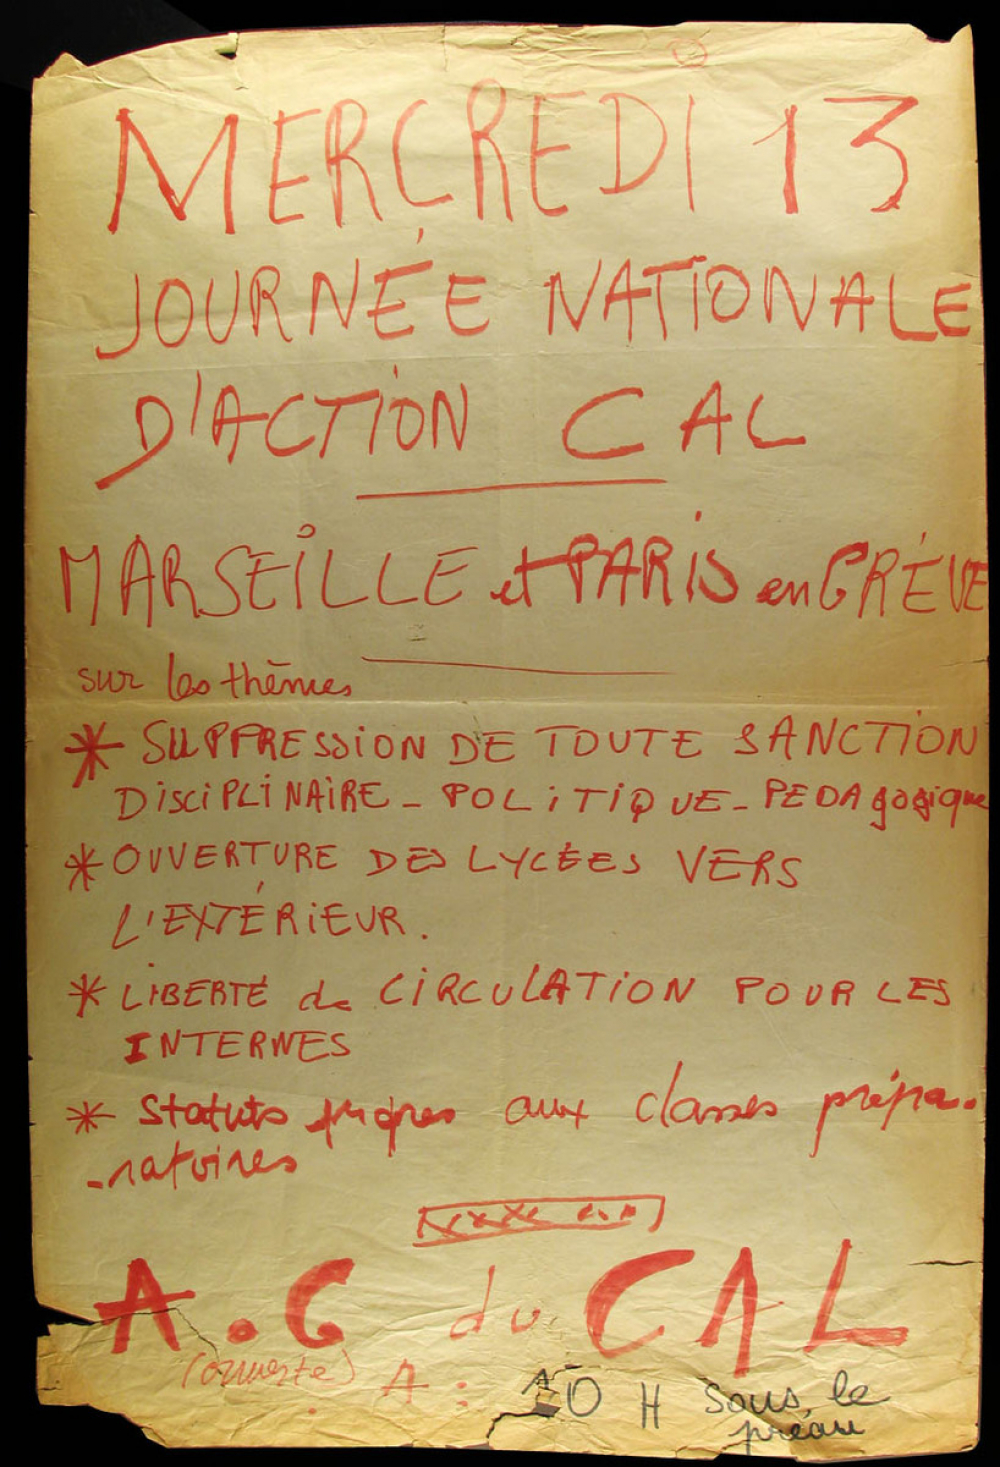 MERCREDI 13
JOURNÉE NATIONALE
D'ACTION CAL
MARSEILLE et PARIS en GRÈVE
sur les thèmes
* SUPPRESSION DE TOUTE SANCTION
DISCIPLINAIRE - POLITIQUE - PEDAgogique
* OUVERTURE DES LYCÉES VERS
L'EXTÉRIEUR.
* LIBERTÉ de CIRCULATION POUR LES
INTERNES
* Statuts aux classes prépa-
-ratoires
A.G du CAL
(ouverte) A : 10 H sous le
préau